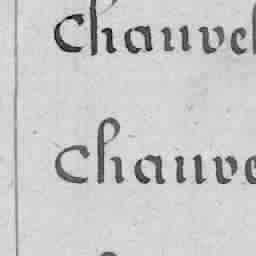 Chauvel
Chauve